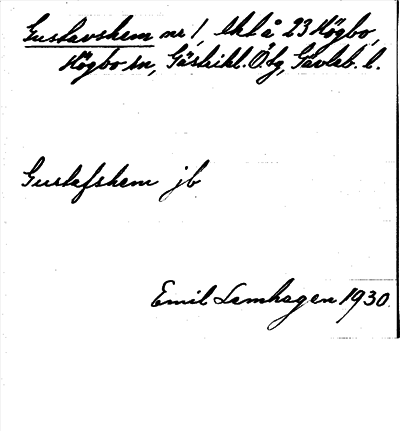 Gustavshem nr 1, lht å 23 Högbo,
Högbo sn, Gästrikl. Ö. tg, Gävleb. l.
Gustafshem jb
Emil Lamhagen 1930.